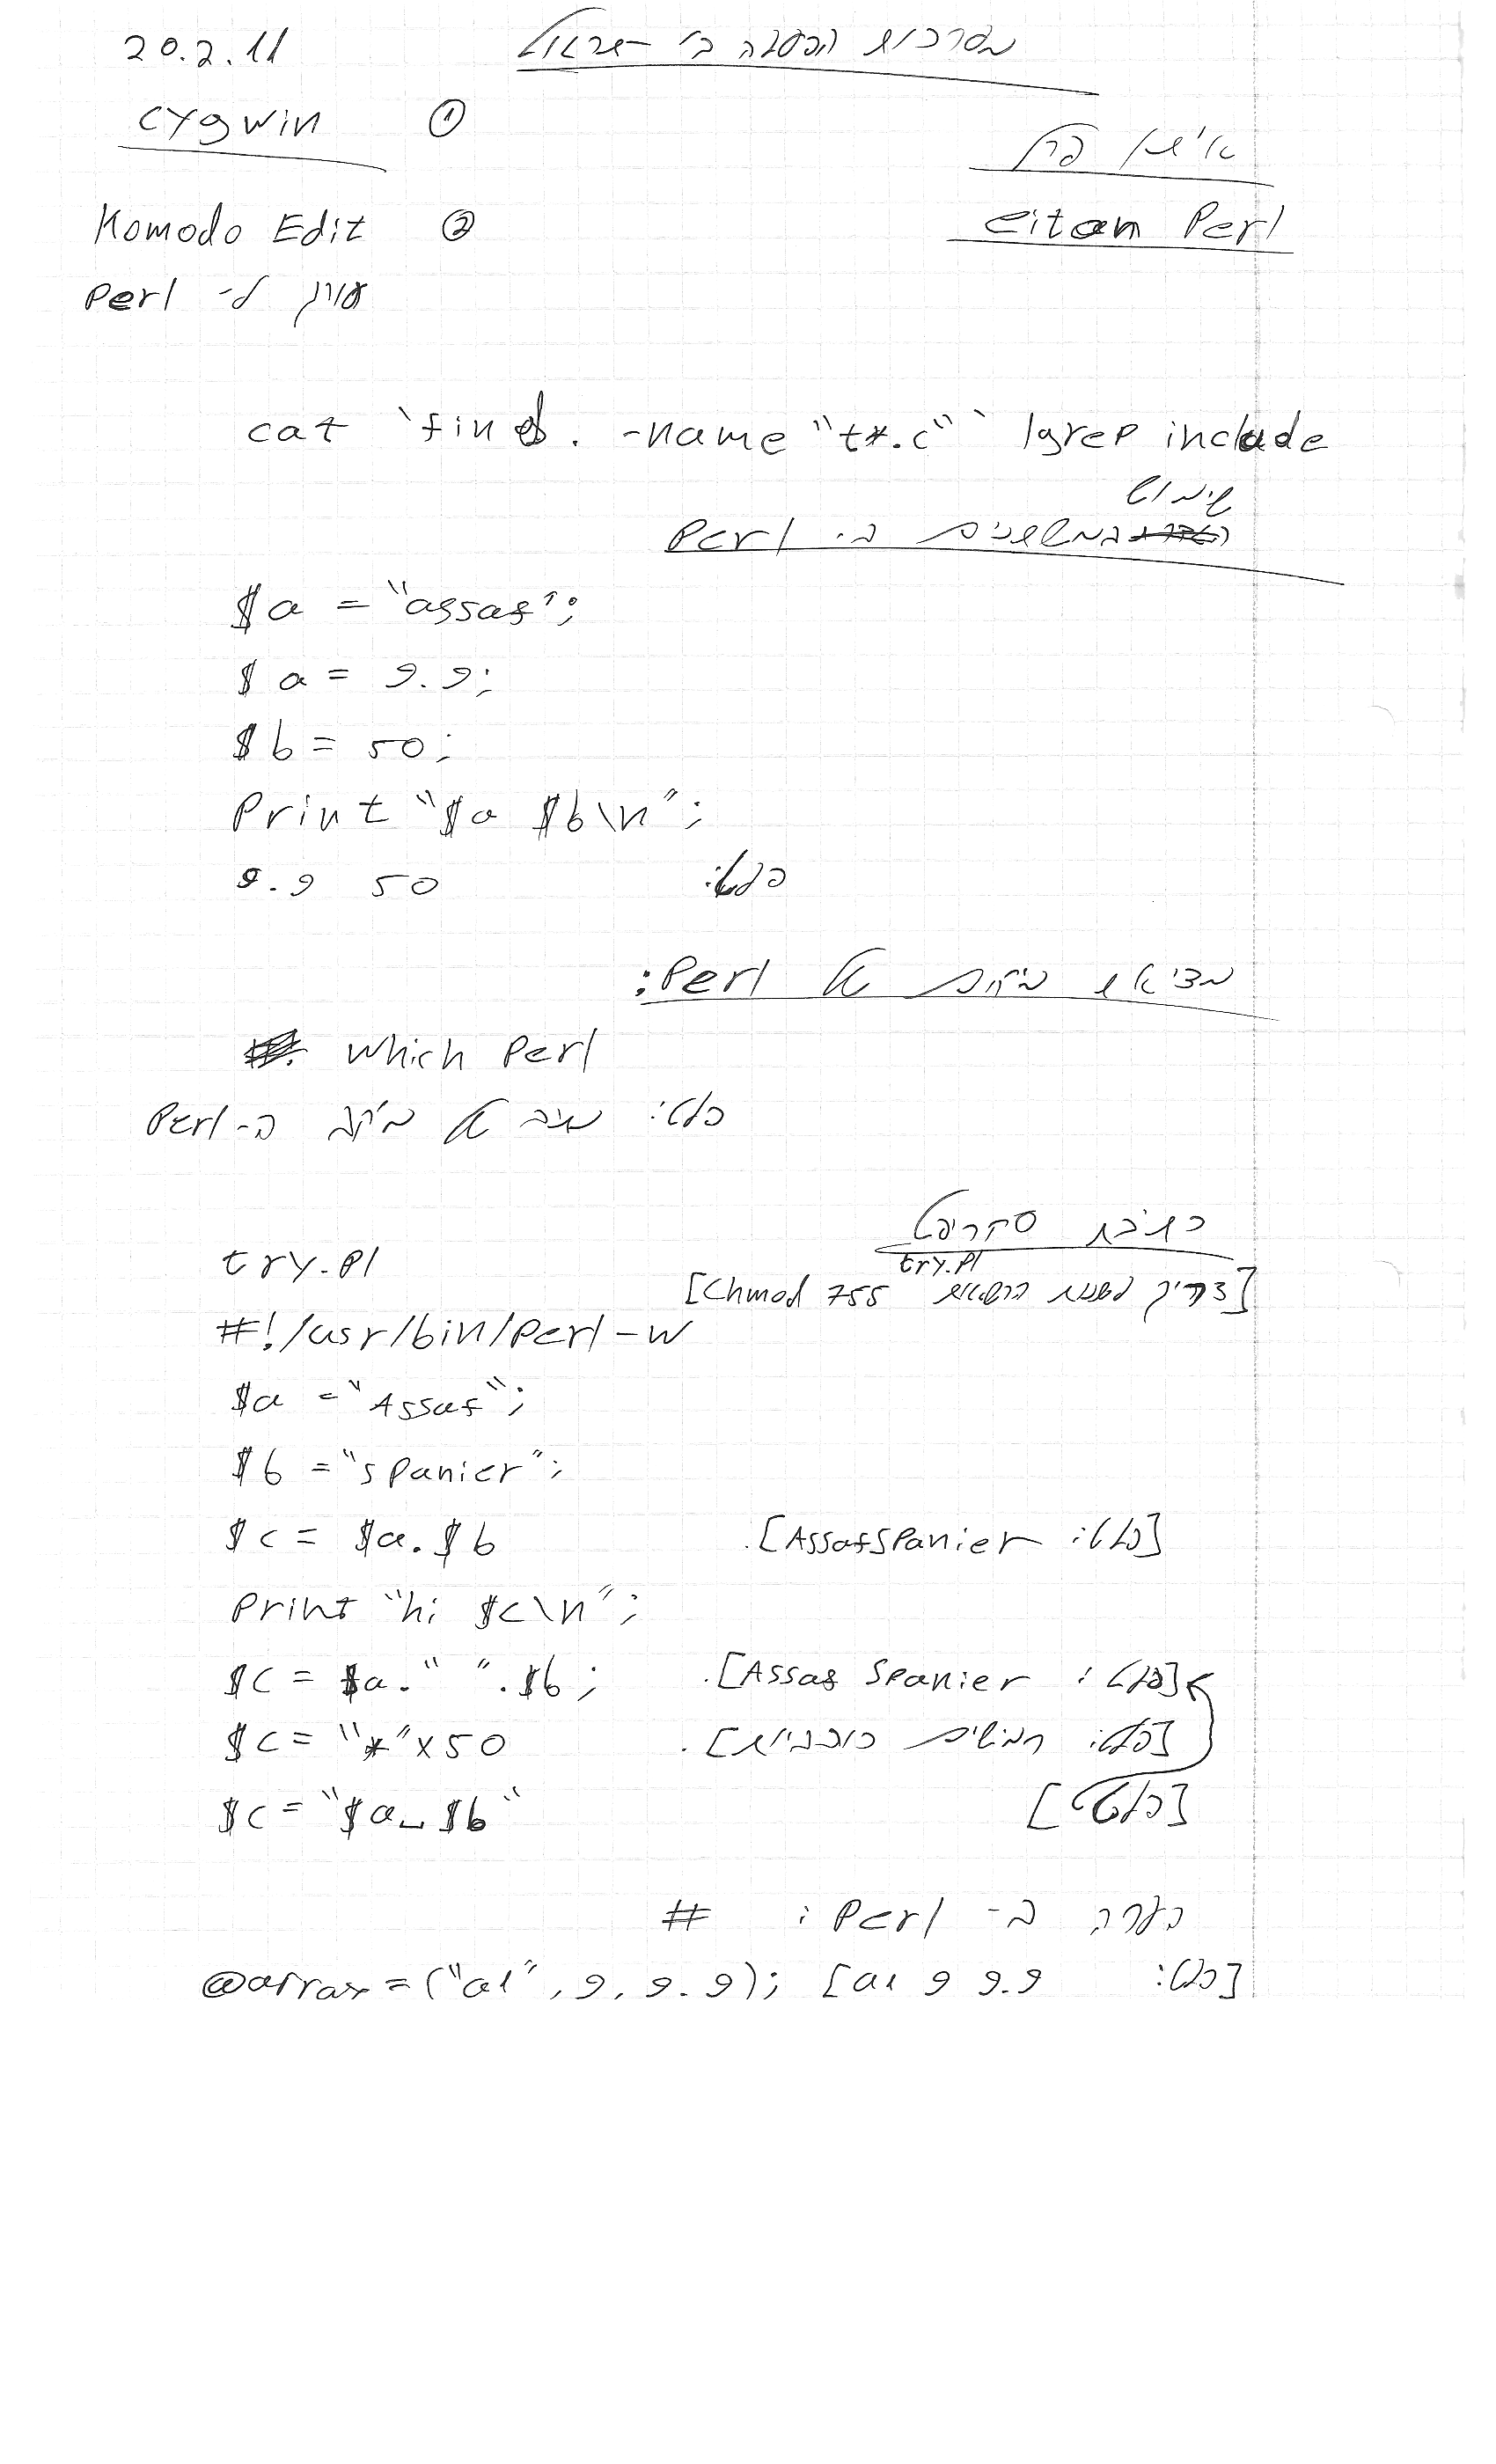 מערכות הפעלה ב' - תרגול 20.2.11
איתן פרל Cygwin ①
Eitan Perl
Komodo Edit ②
עורך ל- Perl
cat `find . -name "t*.c"` |grep include
שימוש
במשתנים ב- Perl
$a = "assaf";
$a = 9.9;
$b = 50;
Print "$a $b\n";
פלט: 9.9 50
מציאת מיקום של Perl:
Which Perl
פלט: איפה של מיקום ה-Perl
כתיבת סקריפט
try.pl
[צריך לשנות הרשאות Chmod 755 try.pl]
#!/usr/bin/perl -w
$a = "Assaf";
$b = "spanier";
$c = $a.$b [פלט: AssafSpanier].
Print "hi $c\n";
$c = $a." ".$b; [פלט: Assaf Spanier].
$c = "*"x50 [פלט: חמישים כוכביות].
$c = "$a␣$b" [פלט]
הערה ב- Perl: #
@array = ("a1", 9, 9.9); [פלט: a1 9 9.9